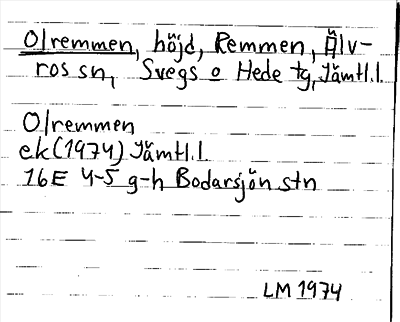 Olremmen, höjd, Remmen, Älv-
ros sn, Svegs o Hede tg, Jämtl.l.
Olremmen
ek(1974) Jämtl.l.
16E 4-5 g-h Bodarsjön stn
LM 1974